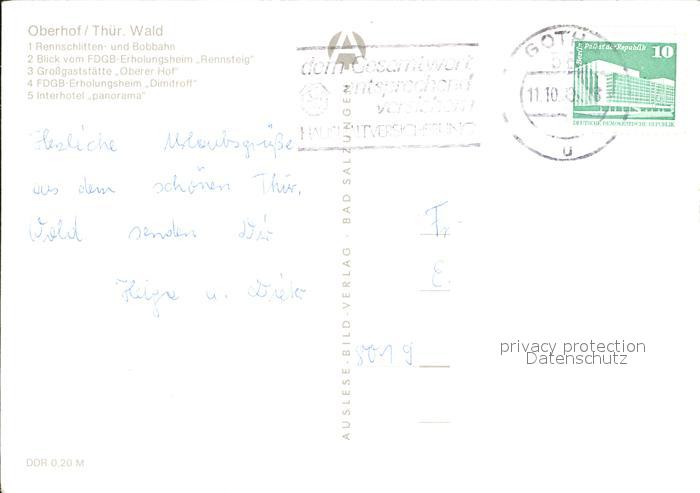 Oberhof / Thür. Wald
1 Rennschlitten- und Bobbahn
2 Blick vom FDGB-Erholungsheim „Rennsteig"
3 Großgaststätte „Oberer Hof"
4 FDGB-Erholungsheim „Dimitroff"
5 Interhotel „panorama"
dem Gesamtwert
entsprechend
versichern
HAUSHALTVERSICHERUNG
GOTHA
11.10.
u
Berlin, Palast der Republik
10
DEUTSCHE DEMOKRATISCHE REPUBLIK
Herzliche Urlaubsgrüße
aus dem schönen Thür.
Wald senden Dir
u.
Fr.
E.
8019
privacy protection
Datenschutz
AUSLESE-BILD-VERLAG · BAD SALZUNGEN
DDR 0,20 M